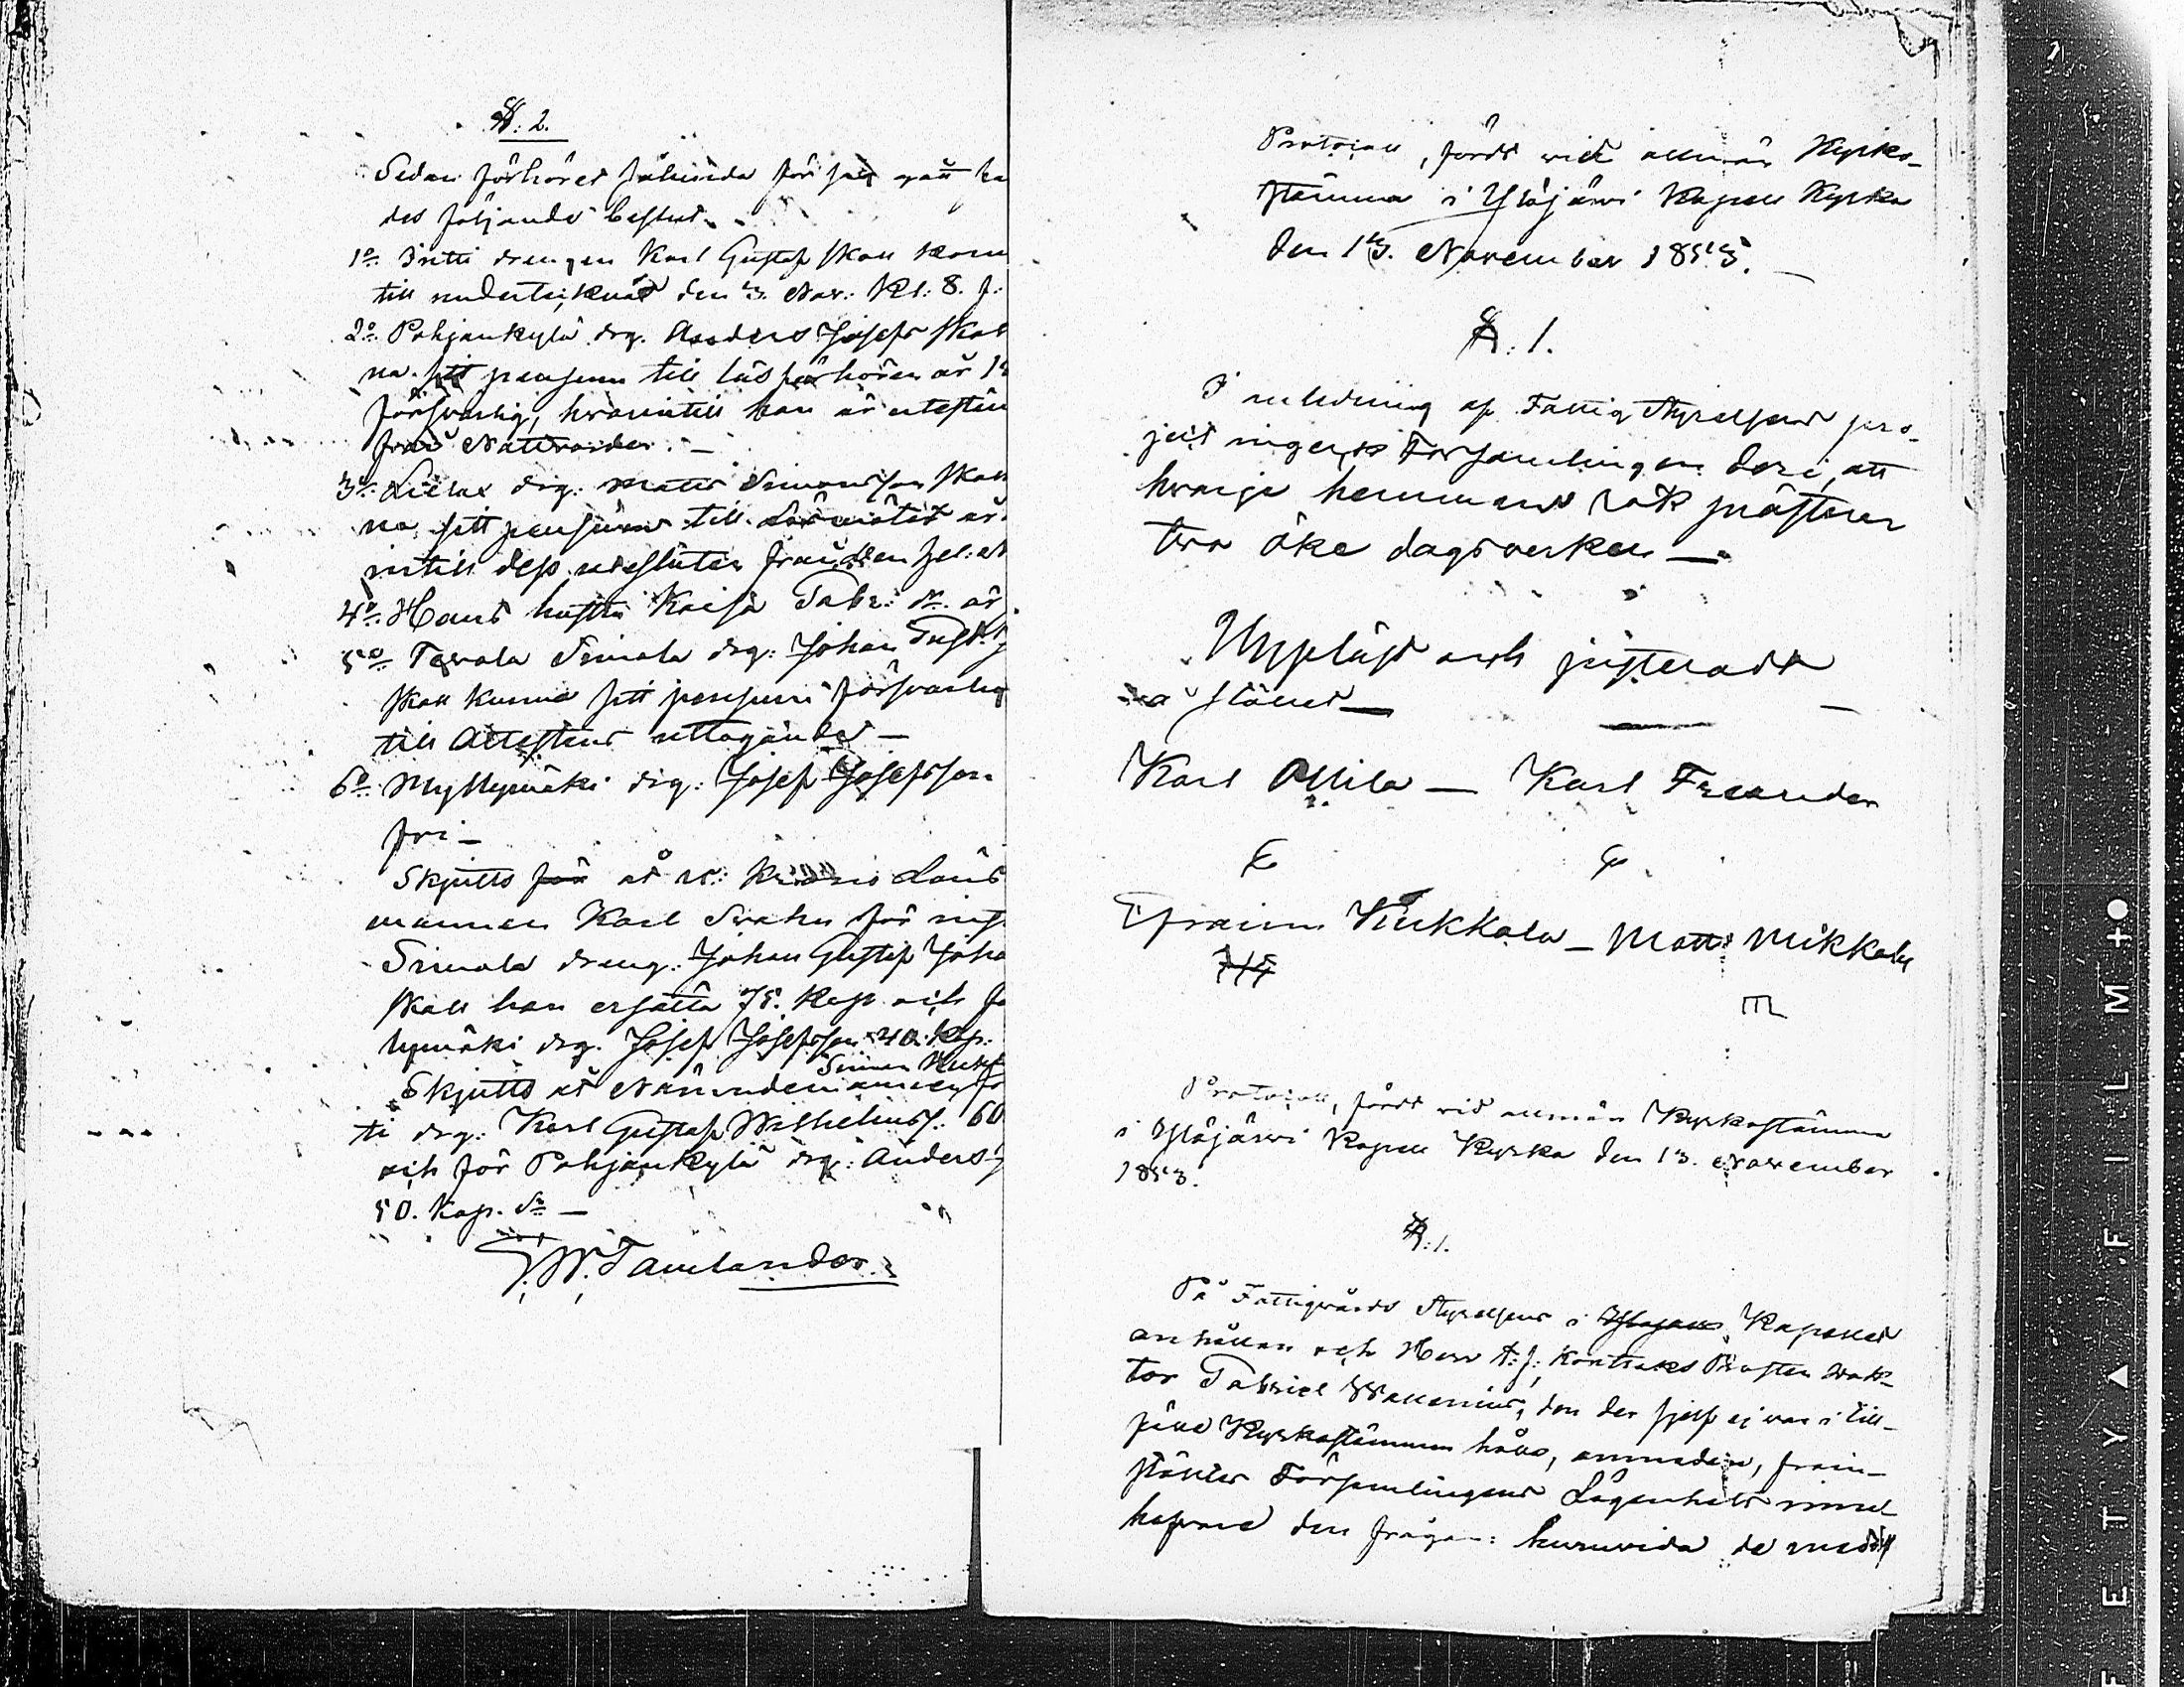 §: 2.
Sedan förhöret sålunda för sig gått
des följande beslut.
1º Intti drengen Karl Gustaf skall kom
till undertecknad den 3. Nov: Kl: 8. f:
2º Pohjankylä drg. Anders Josefs skall
na sitt pensum till läsförhören år 18
försvarlig, hvarintill han är utesluten
från Nattvarden. –
3º drg: Matts Simonsson skall
na sitt pensum till år
intill dess utesluten från den
4º Hans hustru Kaisa Gabr: dr. är
5º Tervala Simola drg: Johan Gust:
skall kunna sitt pensum försvarlig
till Attestens uttagande –
6º Myllymäki drg: Josef Josefsson
fri –
Skjutts för åt v: Krono Läns
mannen Karl Swahn för
Simola dreng: Johan Gustaf Joha
skall han ersätta 75. Kop och
lymäki drg. Josef Josefsson 40. kop.
Simon
Skjutts åt Nämndemannen
ti drg: Karl Gustaf Wilhelmss: 60
och för Pohjankylä drg: Anders
50. Kop. Sr –
G. W. Tamlander.
Protocoll, fördt vid allmän Kyrko-
stämma i Ylöjärvi Kapell Kyrka
den 13. November 1853. –
§: 1.
I anledning af Fattig Styrelsens pro-
ject ingick Församlingen deri, att
hvarje hemmans rök prästerar
två öke dagsverken –
Uppläst och justeradt
å stället –
Karl Ollila – Karl Freander
Efraim Kukkola – Matts Mikkola
Protocoll, fördt vid allmän Kyrkostämma
i Ylöjärvi Kapell Kyrka den 13. November
1853.
§: 1.
På Fattigvårds Styrelsens i Kapellet
anhållan och Herr t: f: Kontrakts Prosten Dok-
tor Gabriel Wallenius, den der sjelf ej var i till-
fälle Kyrkostämman hålla, anmodan, fram-
stältes Församlingens Lägenhets inne
hafvare den frågan: huruvida de medelst